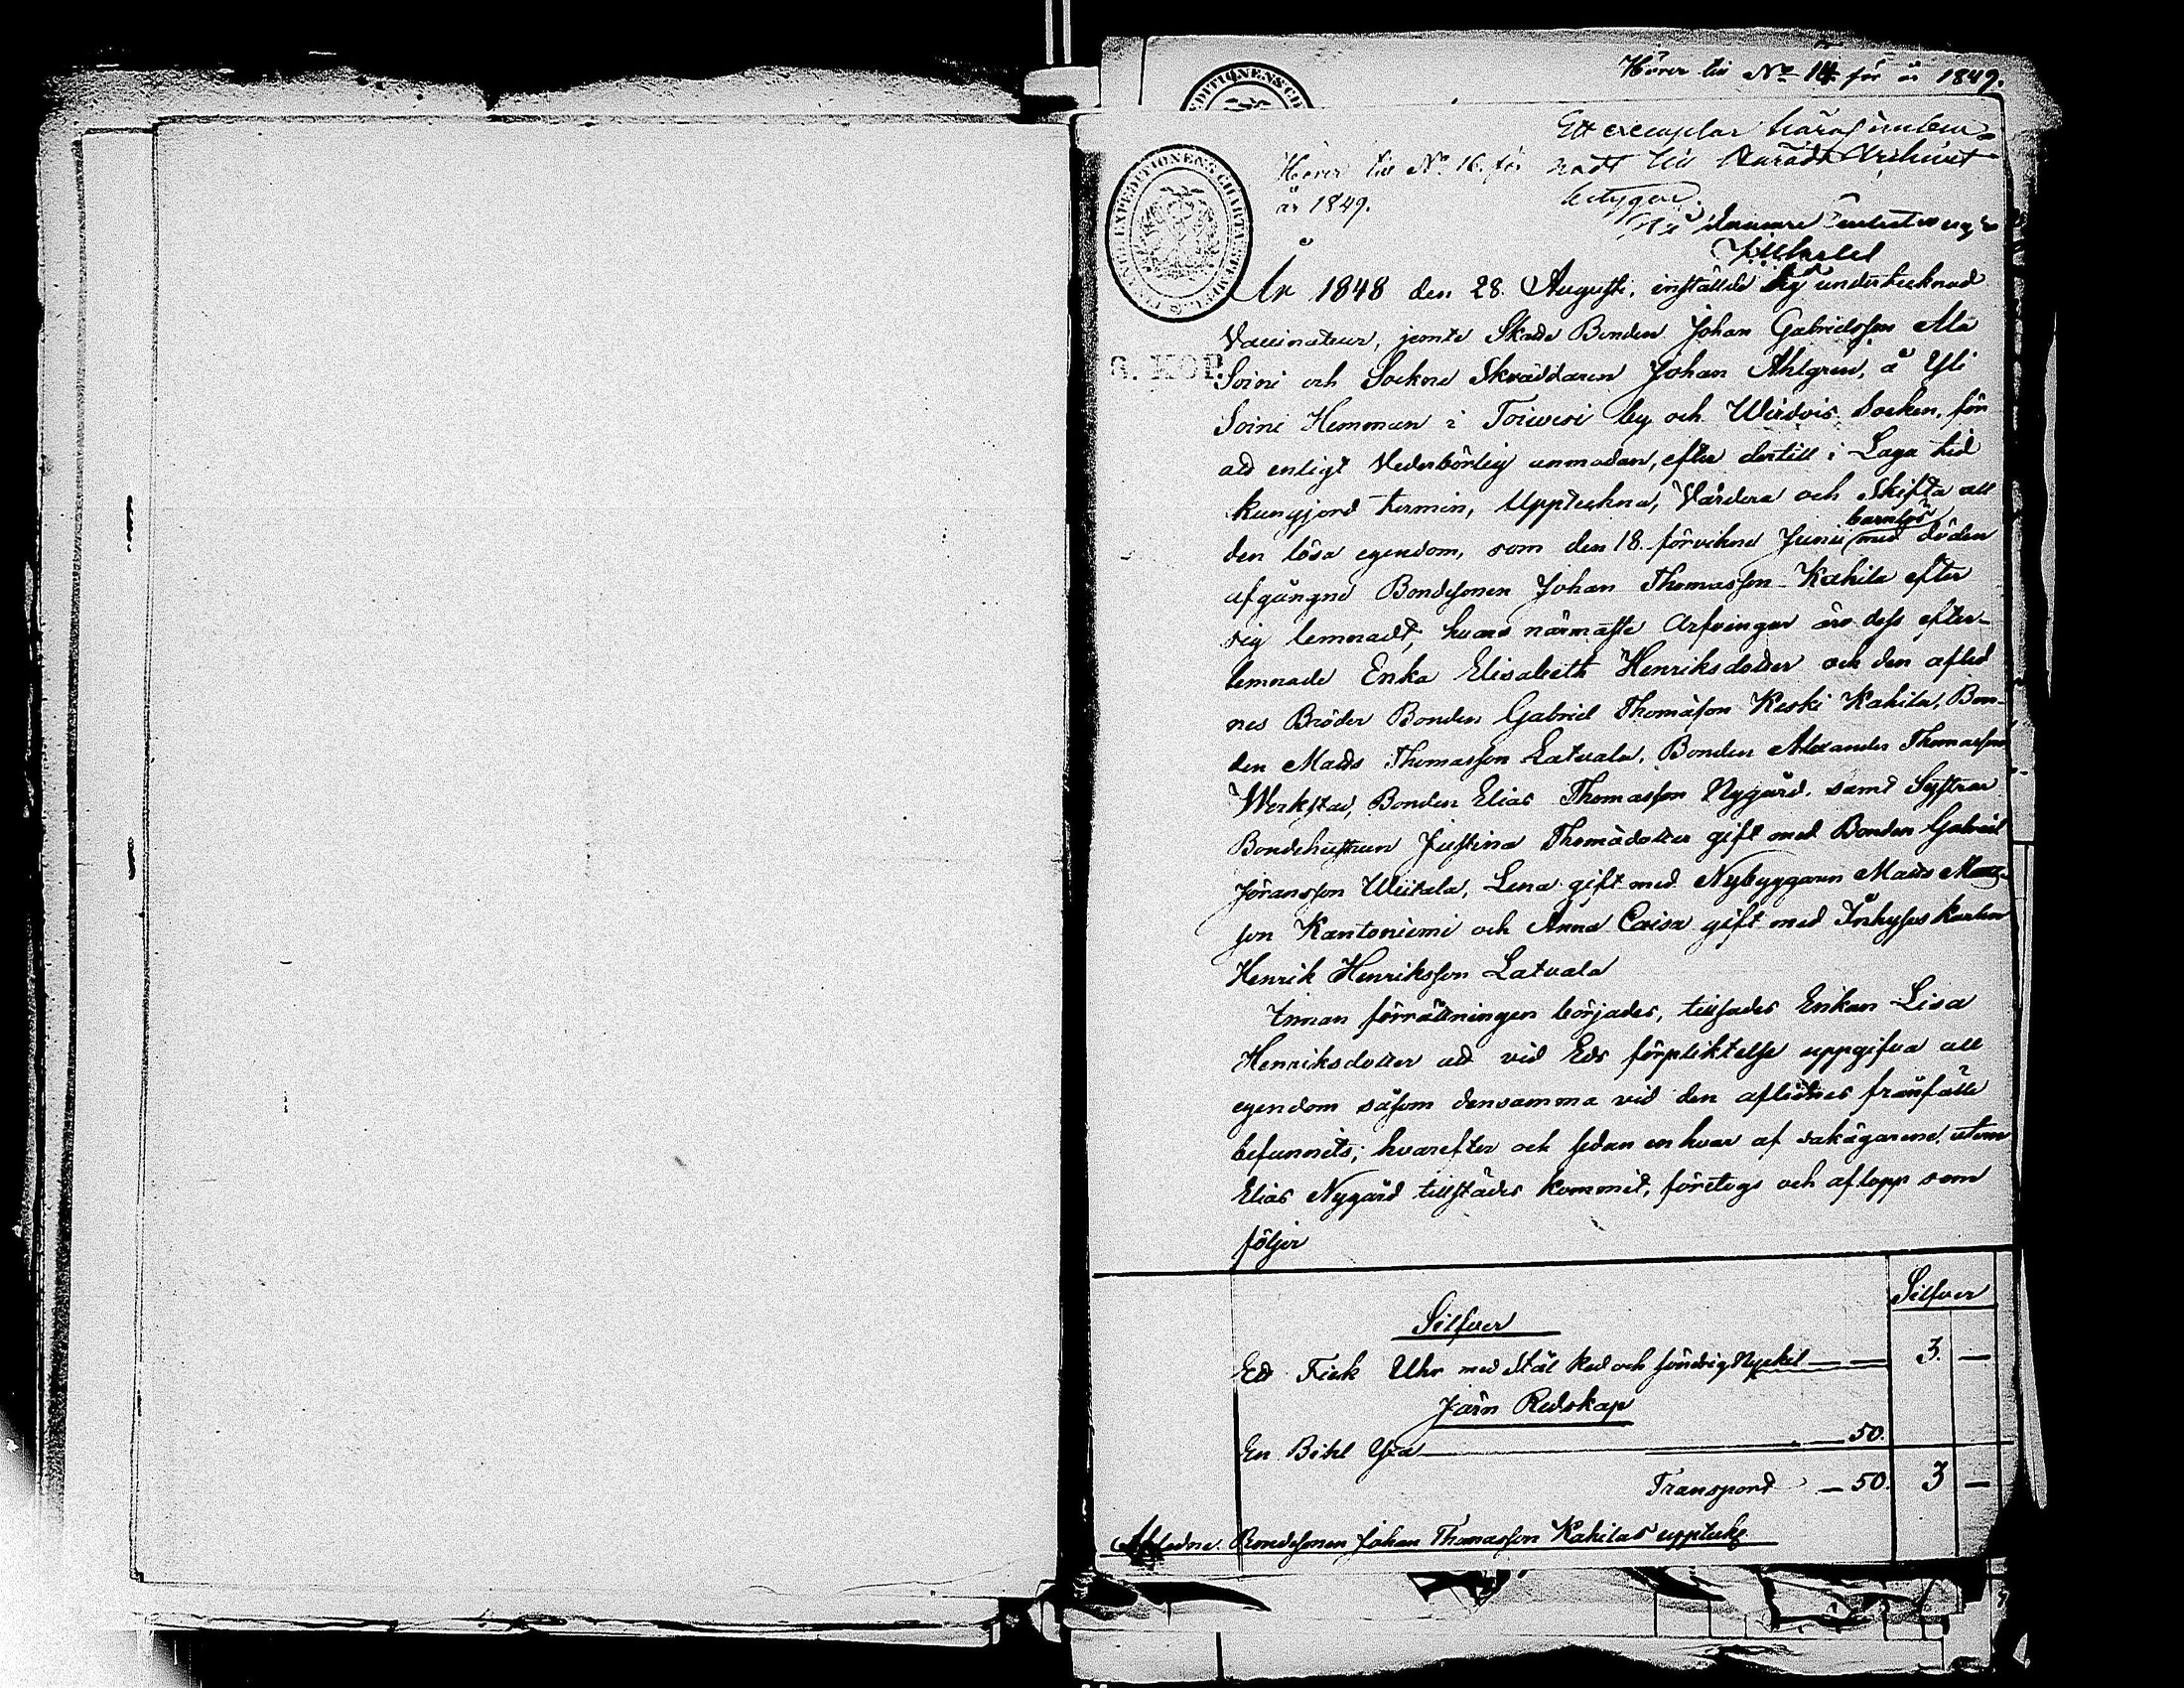 Hörer till No 14 för år 1849.
Ett exemplar häraf
Hörer till No 16. för
år 1849.
betygar
År 1848 den 28. Augusti, inställde sig undertecknad
Vaccinateur, jemte Skatte Bonden Johan Gabrielsson Ala
6. KOP.
Soini och Sockne Skräddaren Johan Ahlgren, å Yli
Soini Hemman i Toivesi by och Wirdois Socken, för
att enligt Vederbörlig anmodan, efter dertill i Laga tid
kungjord termin, Uppteckna, Värdera och Skifta all
barnlös
den lösa egendom, som den 18. förvikne Junii med döden
afgångne Bondesonen Johan Thomasson Kahila efter
sig lemnadt, hvars närmaste Arfvingar äro dess efter-
lemnade Enka Elisabeth Henriksdotter och den afled
nes Bröder Bonden Gabriel Thomasson Keski Kahila, Bon-
den Matts Thomasson Latvala, Bonden Alexander Thomasson
Werkstad, Bonden Elias Thomasson Nygård, samt Systrar
Bondehustrun Justina Thomädotter gift med Bonden Gabriel
Jöransson Uiitala, Lena gift med Nybyggaren Matts Matts-
son Kantoniemi och Anna Caisa gift med Inhyses karlen
Henrik Henriksson Latvala
Innan förrättningen börjades, tillsades Enkan Lisa
Henriksdotter att vid Eds förpliktelse uppgifva all
egendom såsom densamma vid den aflednes frånfälle
befunnits; hvarefter och sedan en hvar af sakägarene, utom
Elias Nygård tillstädes kommit, företogs och aflopp som
följer
Silfver
Silfver
Ett Fick Uhr med Stål ked och söndrig Nyckel — 3. —
Järn Redskap
En Bihl Yxa — 50.
Transport — 50. 3 —
Afledne Bondesonen Johan Thomasson Kahilas uppteckg